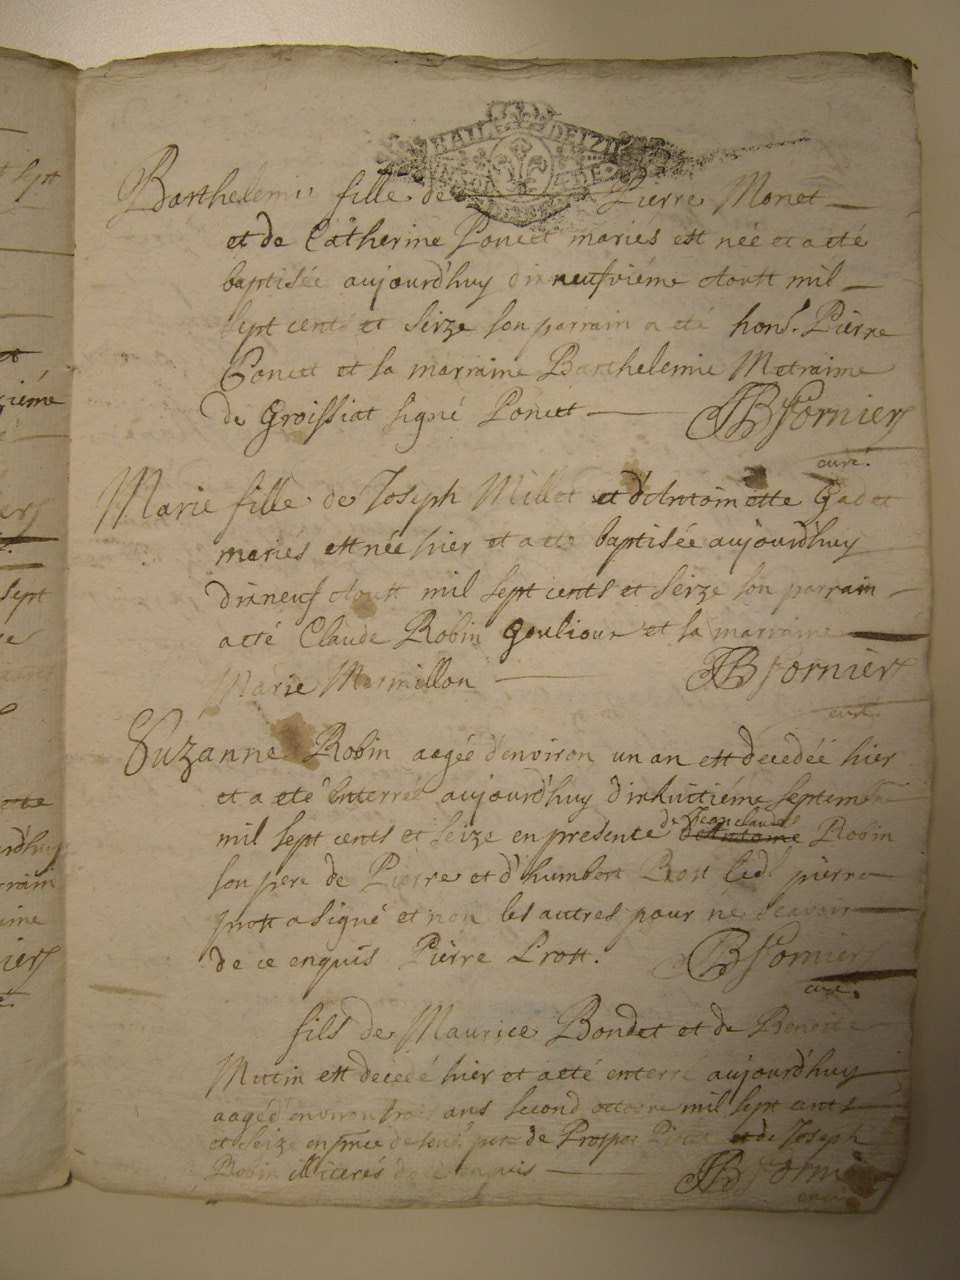 Barthelemie fille de Pierre Monet
et de Catherine Poncet mariés est née et a eté
baptisée aujourd'huy dixneufvième d'outt mil
sept cents et seize son parrain a eté hon.^t Pierre
Poncet et sa marraine Barthelemie Metraime
de Groissiat signé Poncet JB Fornier
curé.
Marie fille de Joseph Millet et d'Antoinette Gadet
mariés est née hier et a eté baptisée aujourd'huy
dixneuf d'outt mil sept cents et seize son parrain
a eté Claude Robin Goulioux et sa marraine
Marie Mermillon JB Fornier
curé.
Suzanne Robin aagée d'environ un an est decedéé hier
et a eté enterrée aujourd'huy dixhuitiéme septembre
de Jean claude
mil sept cents et seize en presente d'Antoine Robin
son pere de Pierre et d'humbert Prost led.^t pierre
prost a signé et non les autres pour ne sçavoir
de ce enquis Pierre Prost. JB Fornier
curé.
fils de Maurice Bondet et de Benoite
Mutin est decedé hier et a eté enterré aujourd'huy
aagé d'environ trois ans second octobre mil sept cents
et seize en pnce de son pere de Prosper et de Joseph
Robin illiterés de ce enquis JB Fornier
curé